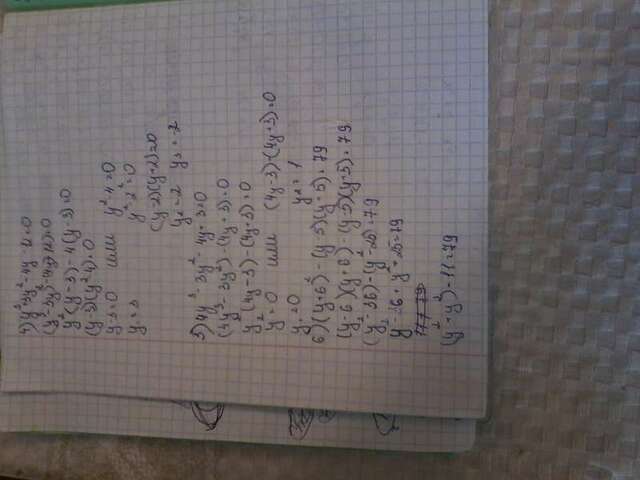 4) y³-3y²-4y+12=0
(y³-3y²)-(4y-12)=0
y²(y-3)-4(y-3)=0
(y-3)(y²-4)=0
y-3=0 или y²-4=0
y=3 y²-2²=0
(y-2)(y+2)=0
y₂=2 y₃=-2
5) 4y³-3y²-4y+3=0
(4y³-3y²)-(4y+3)=0
y²(4y-3)-(4y-3)=0
y²=0 или (4y-3)-(4y+3)=0
y₁=0 y₂=1
6) (y+6)²-(y-5)(y+5)=79
(y-6)(y+6)-(y-5)(y-5)=79
(y²-36)-(y²-25)=79
y²-36+y²-25=79
(y²+y²)-11=79